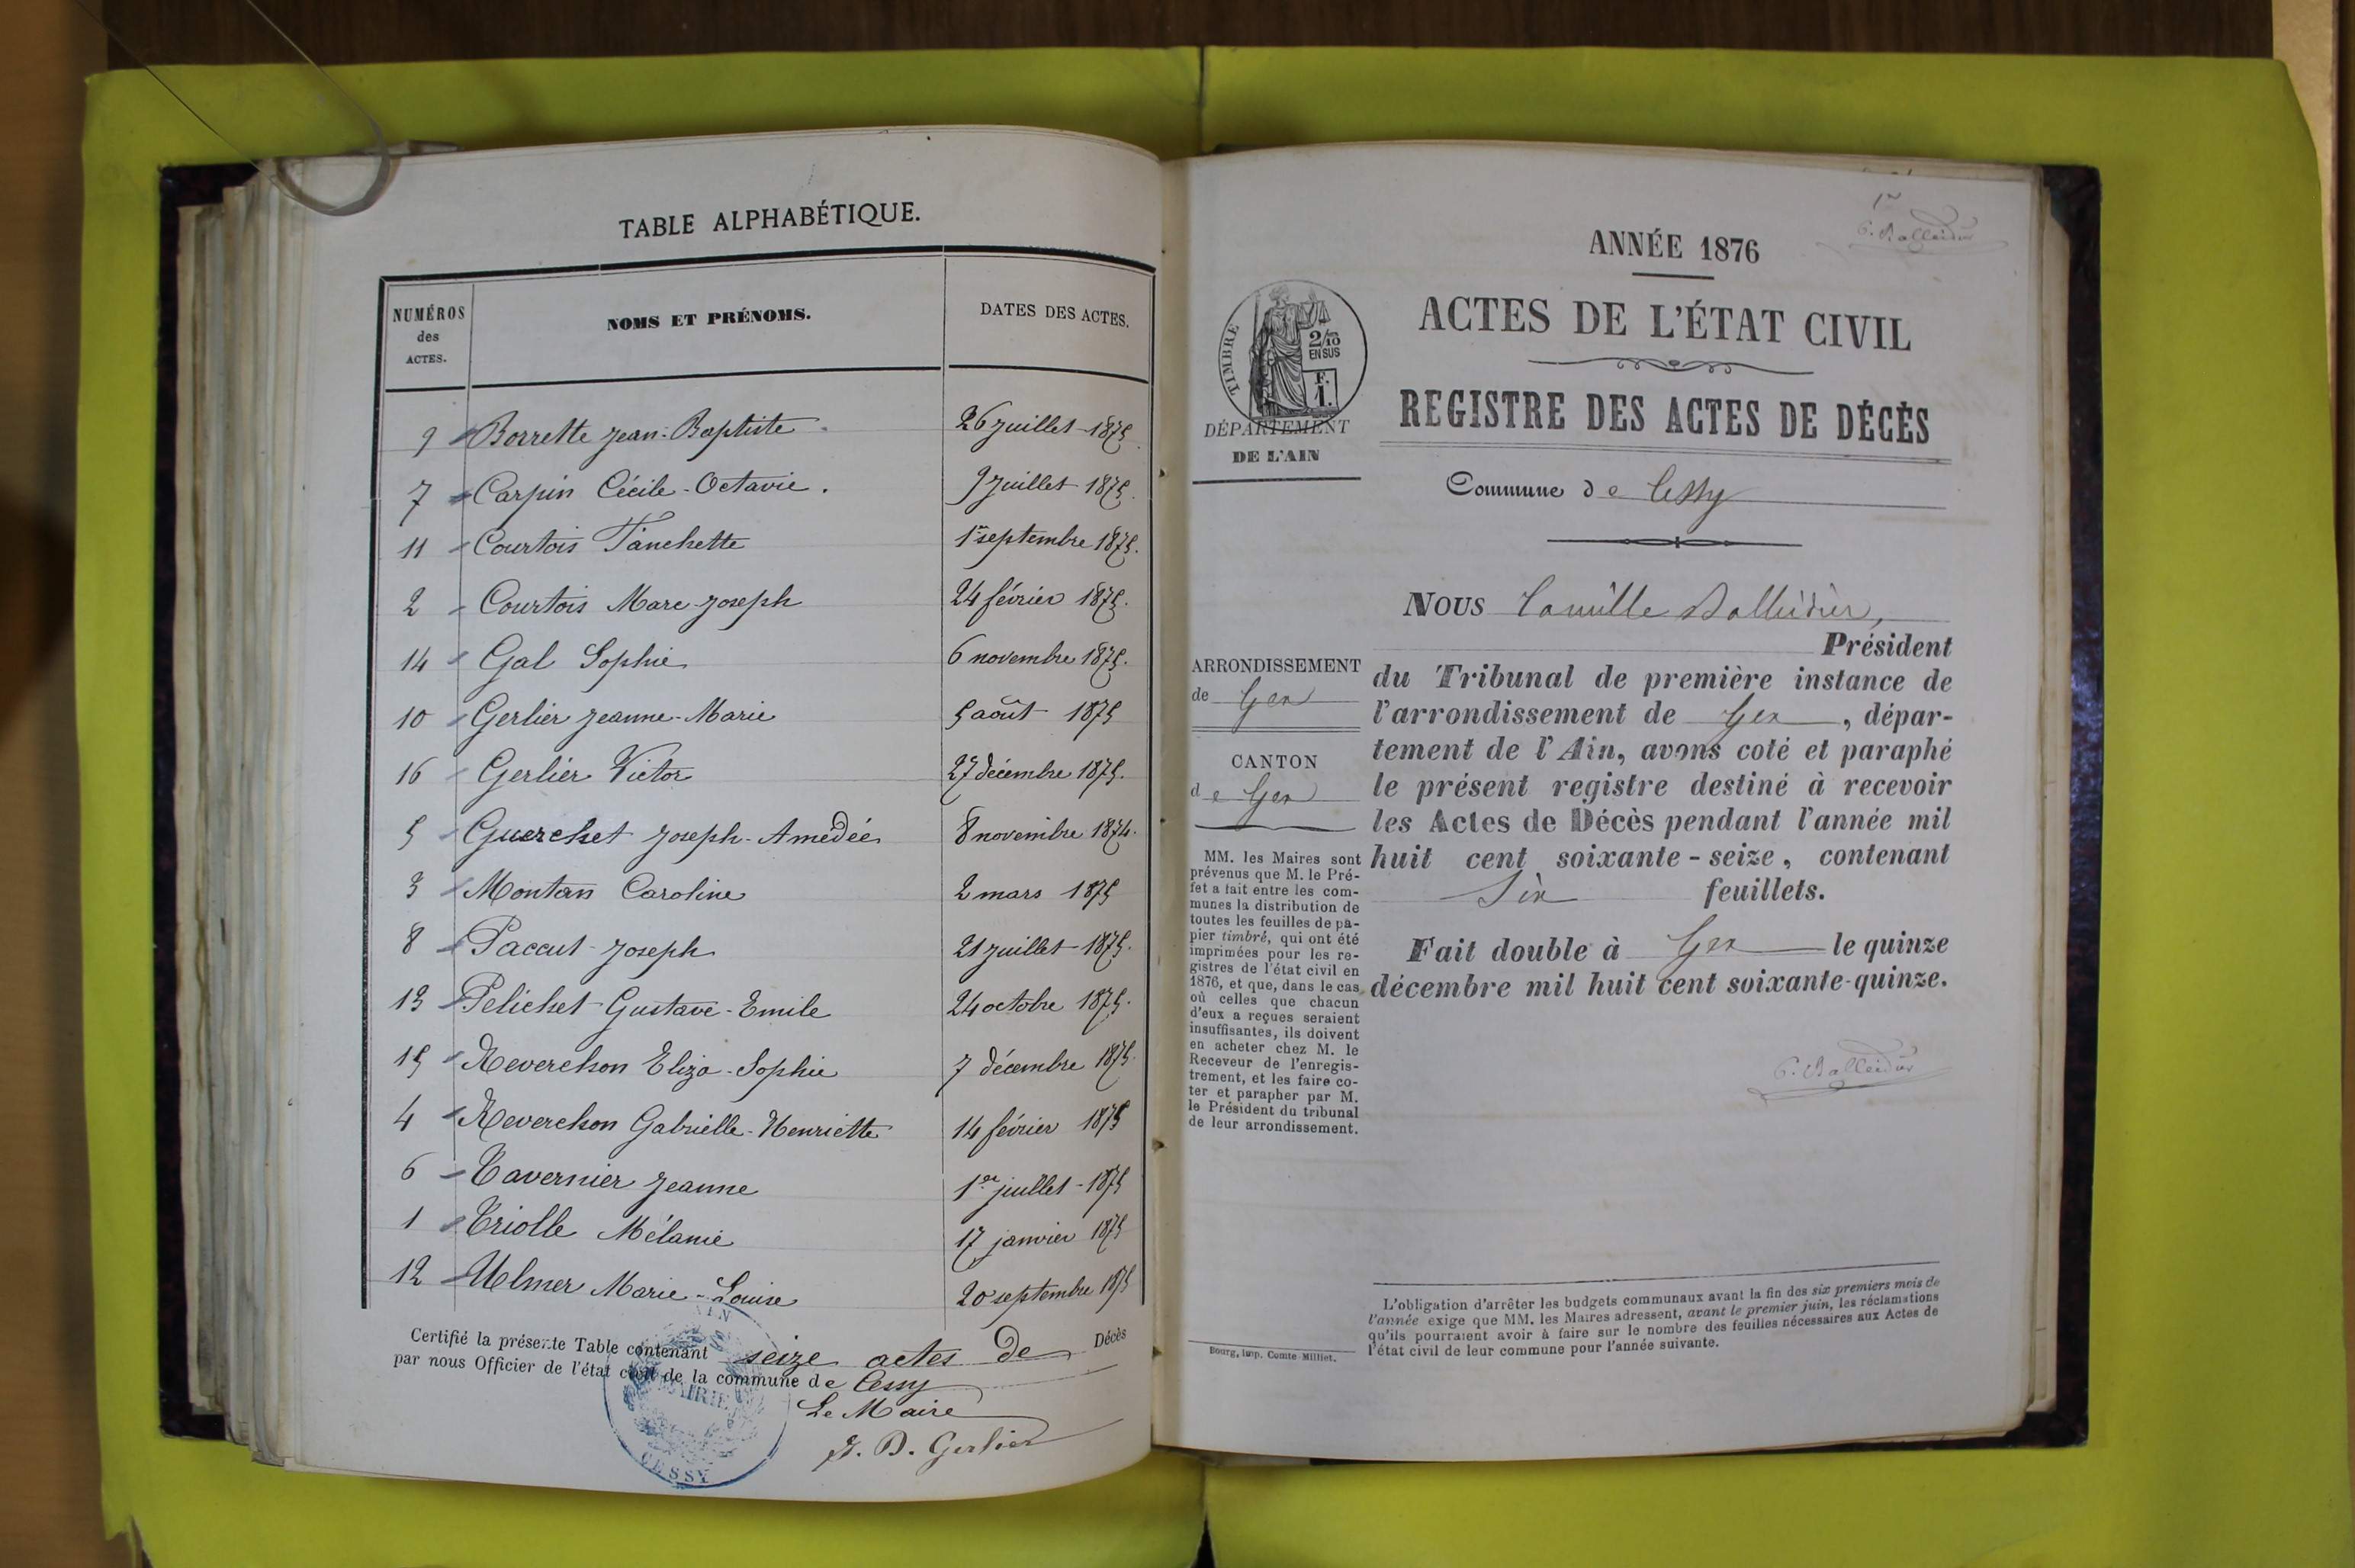 TABLE ALPHABÉTIQUE.
NUMÉROS
des
ACTES.
NOMS ET PRÉNOMS.
DATES DES ACTES.
9 Borrette Jean-Baptiste 26 juillet 1875.
7 Carpin Cécile-Octavie. 9 juillet 1875.
11 Courtois Fanchette 1er septembre 1875.
2 Courtois Marc Joseph 24 février 1875.
14 Gal Sophie 6 novembre 1875.
10 Gerlier Jeanne-Marie 5 août 1875
16 Gerlier Victor 27 décembre 1875.
5 Guerchet Joseph-Amédée 8 novembre 1874.
3 Montan Caroline 2 mars 1875
8 Paccut Joseph 21 juillet 1875.
13 Pelichet Gustave-Emile 24 octobre 1875.
15 Reverchon Eliza-Sophie 7 décembre 1875.
4 Reverchon Gabrielle-Henriette 14 février 1875
6 Tavernier Jeanne 1er juillet-1875
1 Triolle Mélanie 17 janvier 1875
12 Ulmer Marie-Louise 20 septembre 1875
Certifié la présente Table contenant seize actes de Décès
par nous Officier de l'état civil de la commune de Cessy
Le Maire
J. D. Gerlier
MAIRIE
CESSY
1er
C. Balleidier
ANNÉE 1876
ACTES DE L'ÉTAT CIVIL
REGISTRE DES ACTES DE DÉCÈS
TIMBRE
2/10
EN SUS
F.
1.
DÉPARTEMENT
DE L'AIN
Commune de Cessy
NOUS Camille Balleidier,
Président
du Tribunal de première instance de
l'arrondissement de Gex, dépar-
tement de l'Ain, avons coté et paraphé
le présent registre destiné à recevoir
les Actes de Décès pendant l'année mil
huit cent soixante-seize, contenant
Six feuillets.
Fait double à Gex le quinze
décembre mil huit cent soixante-quinze.
C. Balleidier
ARRONDISSEMENT
de Gex
CANTON
de Gex
MM. les Maires sont
prévenus que M. le Pré-
fet a fait entre les com-
munes la distribution de
toutes les feuilles de pa-
pier timbré, qui ont été
imprimées pour les re-
gistres de l'état civil en
1876, et que, dans le cas
où celles que chacun
d'eux a reçues seraient
insuffisantes, ils doivent
en acheter chez M. le
Receveur de l'enregis-
trement, et les faire co-
ter et parapher par M.
le Président du tribunal
de leur arrondissement.
L'obligation d'arrêter les budgets communaux avant la fin des six premiers mois de
l'année exige que MM. les Maires adressent, avant le premier juin, les réclamations
qu'ils pourraient avoir à faire sur le nombre des feuilles nécessaires aux Actes de
l'état civil de leur commune pour l'année suivante.
Bourg, imp. Comte Milliet.